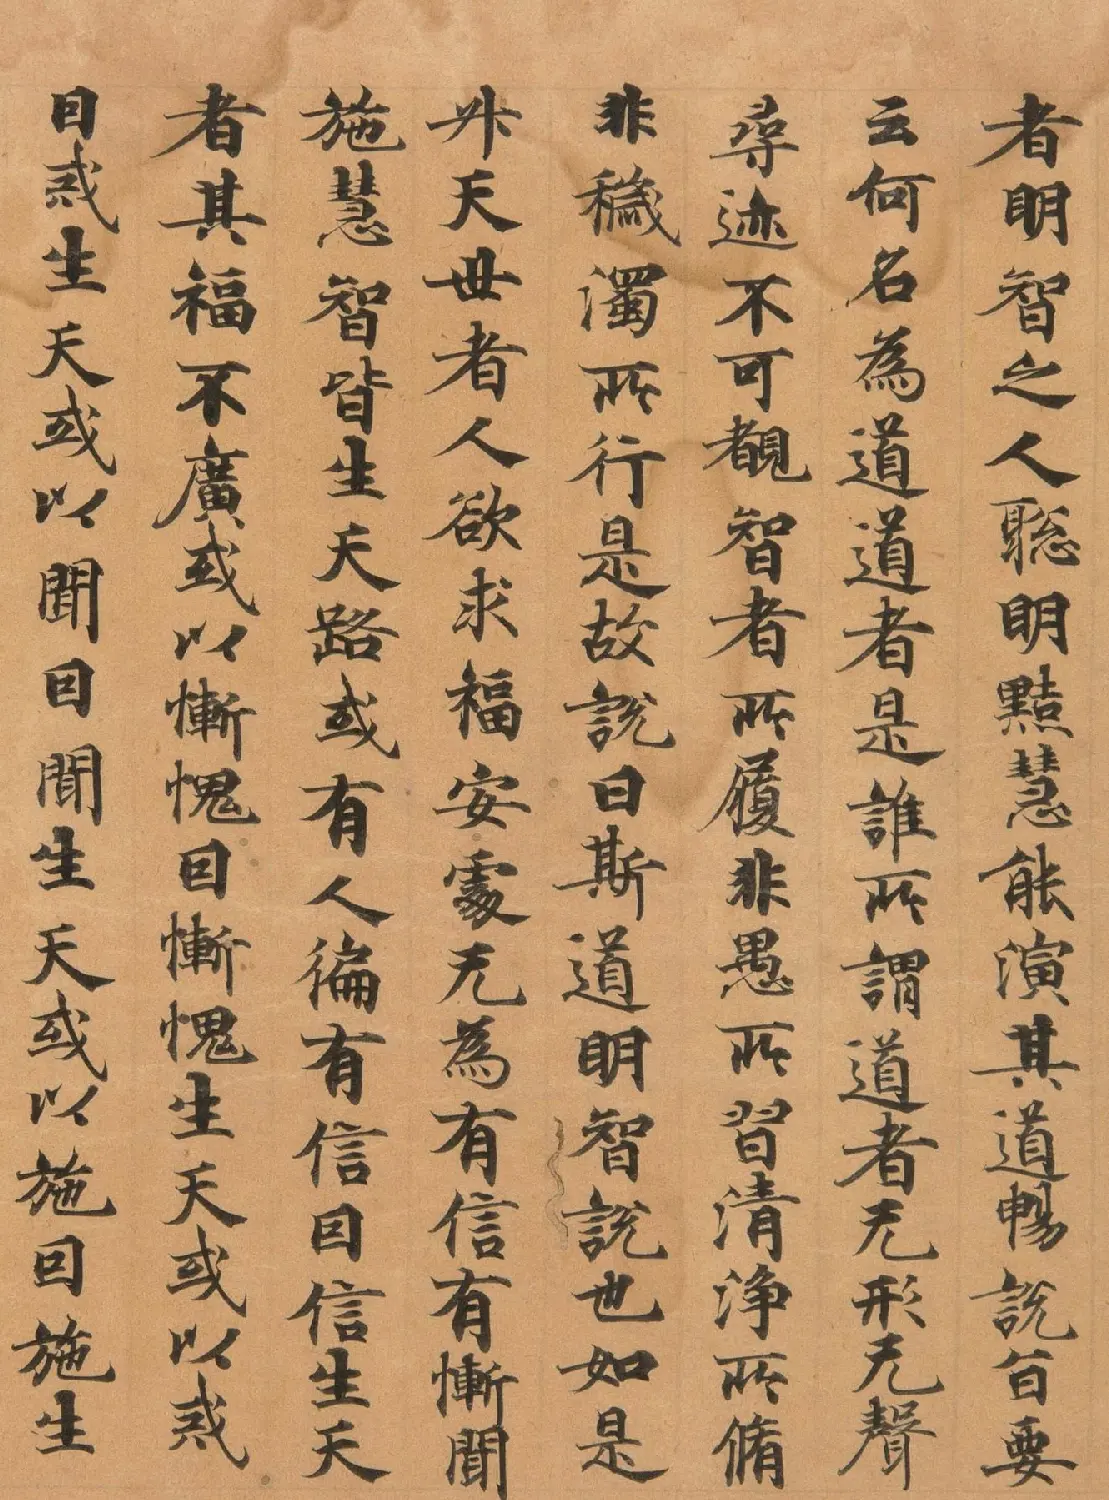 者明智之人聡明黠慧能演其道暢說旨要
云何名為道道者是誰所謂道者无形无聲
尋迹不可覩智者所履非愚所習清浄所脩
非穢濁所行是故說曰斯道明智說也如是
升天世者人欲求福安處无為有信有慚聞
施慧智皆生天路或有人徧有信囙信生天
者其福不廣或以慚愧囙慚愧生天或以戒
囙戒生天或以聞囙聞生天或以施囙施生